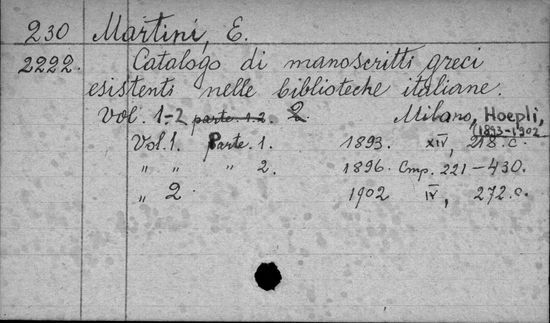 230 Martini, E.
2222. Catalogo di manoscritti greci
esistenti nelle biblioteche italiane.
Vol. 1-2 parte 1.2. 2 Milano, Hoepli,
1893-1902
Vol. 1. Parte 1. 1893. XIV, 218 c.
" " " 2. 1896. Cmp. 221-430.
" 2 1902 IV, 272. c.